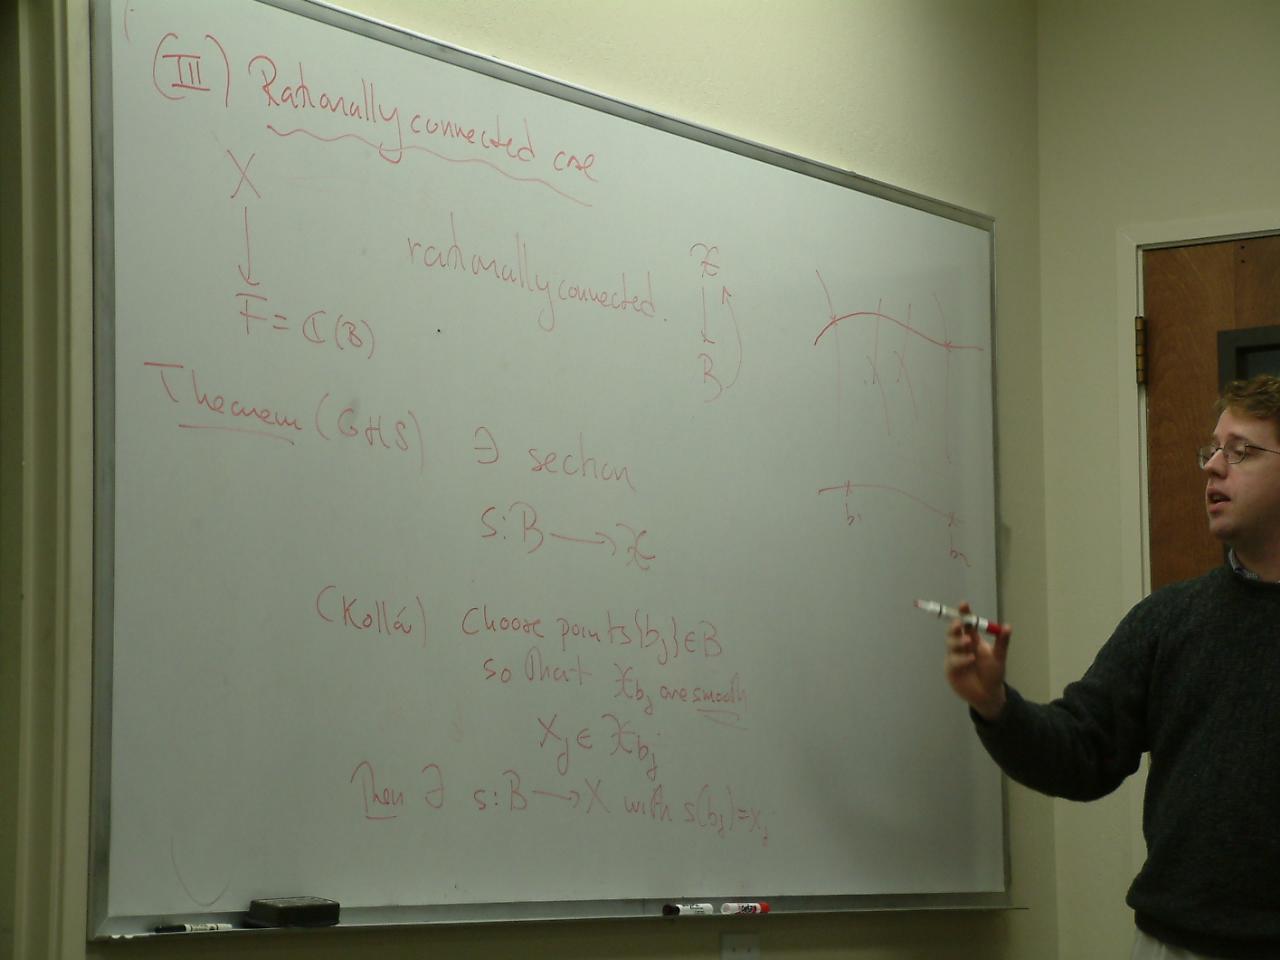 (III) Rationally connected case
X
↓
F = ℂ(B)
rationally connected.
𝒳
↓
B
Theorem (GHS) ∃ section
s: B → 𝒳
(Kollár) Choose points {bj} ∈ B
so that 𝒳bj are smooth
xj ∈ 𝒳bj
Then ∃ s: B → X with s(bj) = xj
b1